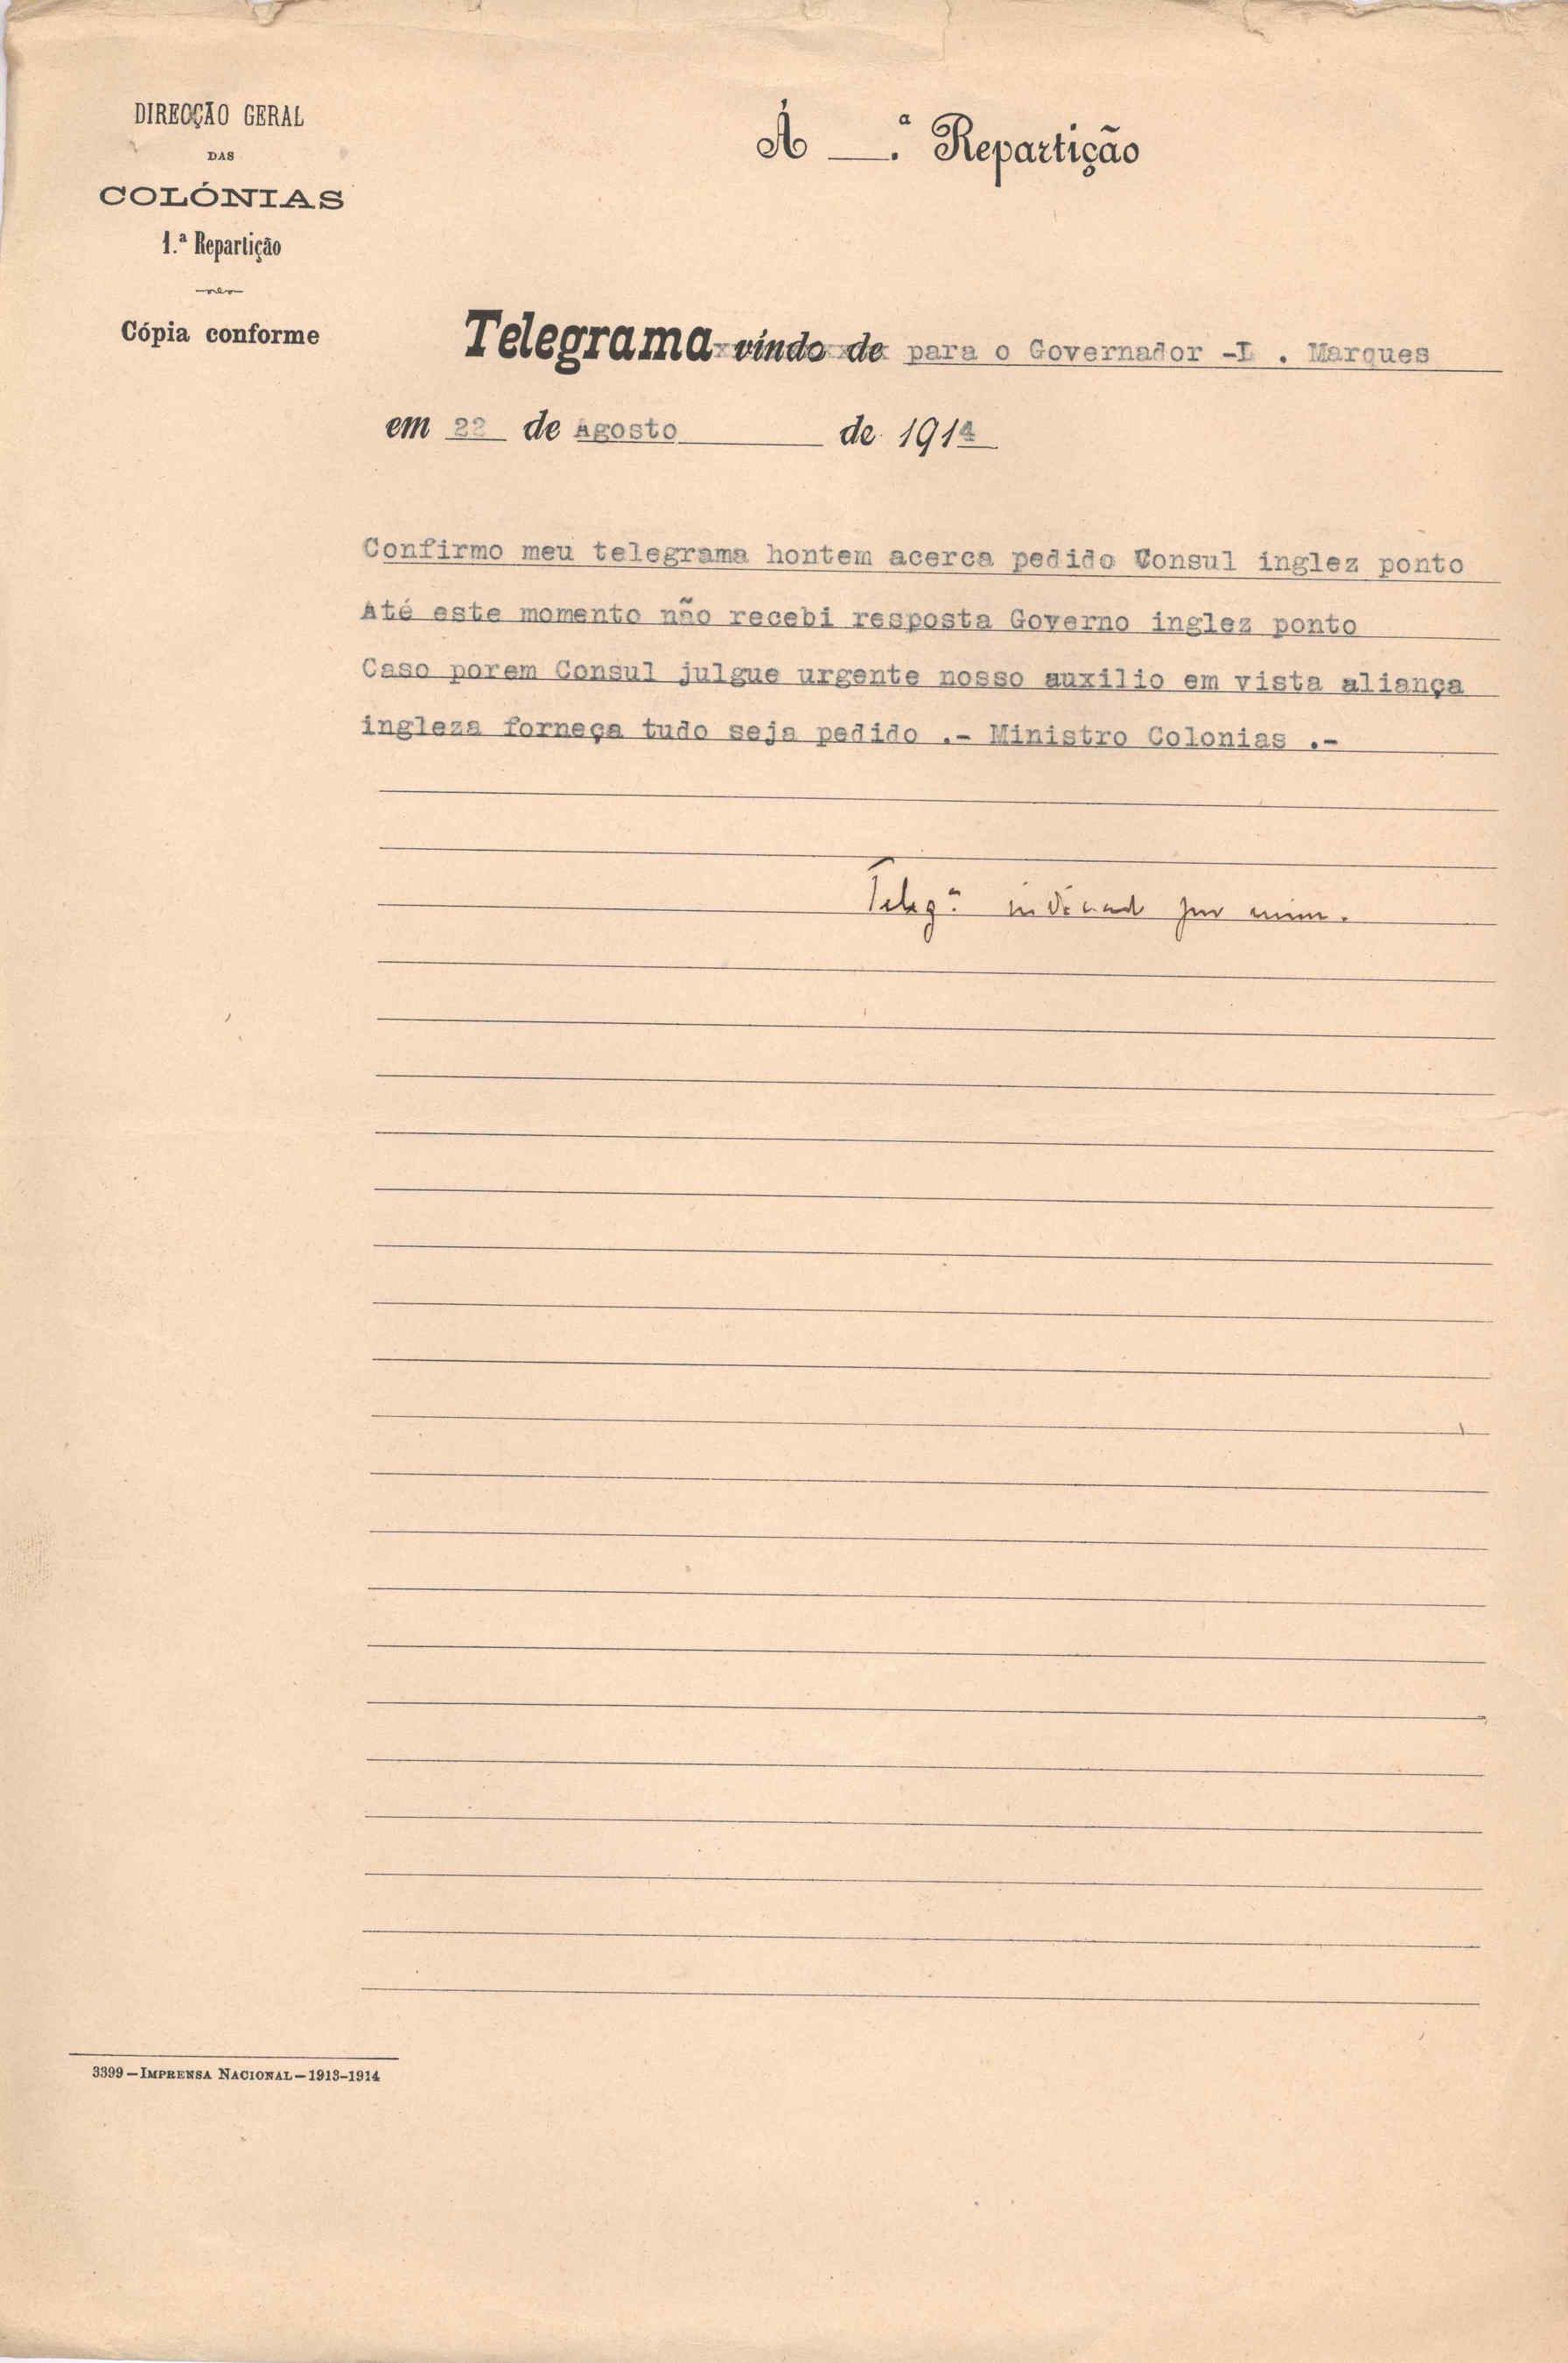 DIRECÇÃO GERAL
DAS
COLÓNIAS
1.ª Repartição
Cópia conforme
Á ___.ª Repartição
Telegrama vindo de para o Governador -L . Marques
em 22 de Agosto de 1914
Confirmo meu telegrama hontem acerca pedido Consul inglez ponto
Até este momento não recebi resposta Governo inglez ponto
Caso porem Consul julgue urgente nosso auxilio em vista aliança
ingleza forneça tudo seja pedido .- Ministro Colonias .-
Teleg.ª indicad por mim.
3399—IMPRENSA NACIONAL—1913-1914